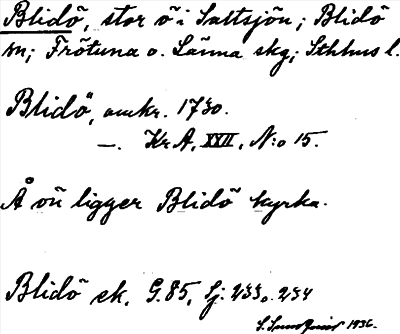 Blidö, stor ö i Saltsjön; Blidö
sn; Frötuna o. Länna skg; Sthlms l.
Blidö, omkr. 1730.
—. Kr A, XXII, N:o 15.
Å ön ligger Blidö kyrka.
Blidö ek. G. 85, Lj: 233 o. 234
1936.